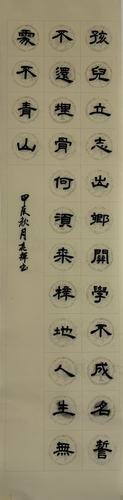 孩兒立志出鄉關學不成名誓
不還埋骨何須桑梓地人生無
處不青山
甲辰秋月